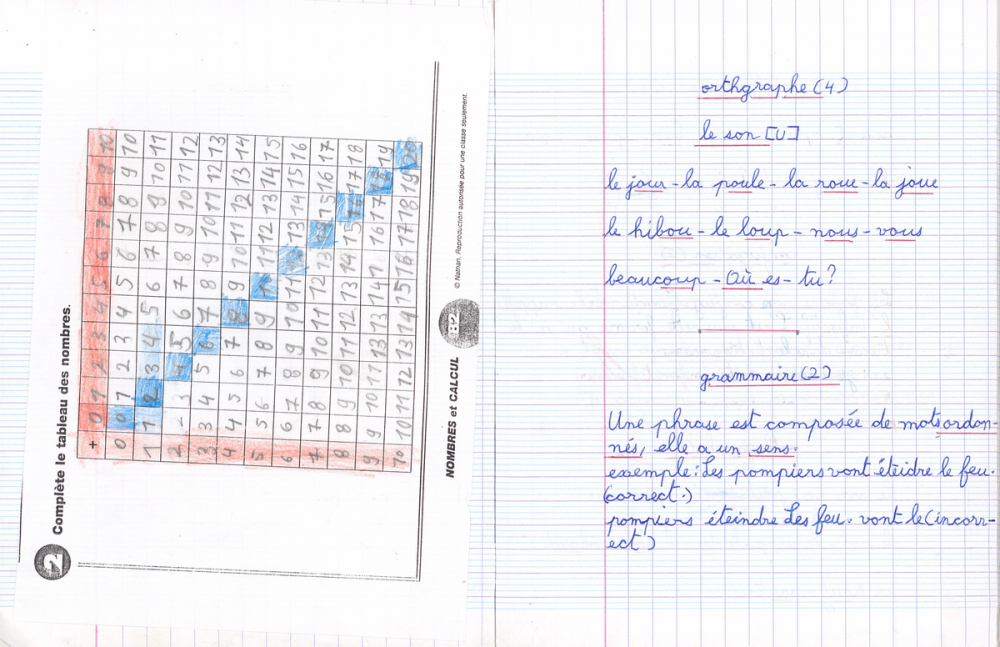 2 Complète le tableau des nombres.
+ 0 1 2 3 4 5 6 7 8 9 10
0 0 1 2 3 4 5 6 7 8 9 10
1 1 2 3 4 5 6 7 8 9 10 11
2 3 4 5 6 7 8 9 10 11 12
3 3 4 5 6 7 8 9 10 11 12 13
4 4 5 6 7 8 9 10 11 12 13 14
5 5 6 7 8 9 10 11 12 13 14 15
6 6 7 8 9 10 11 12 13 14 15 16
7 7 8 9 10 11 12 13 14 15 16 17
8 8 9 10 11 12 13 14 15 16 17 18
9 9 10 11 13 13 14 16 17 18 19
10 10 11 12 13 14 15 16 17 18 19 20
NOMBRES et CALCUL 82 © Nathan. Reproduction autorisée pour une classe seulement.
orthgraphe (4)
le son [U]
le jour - la poule - la roue - la joue
le hibou - le loup - nous - vous
beaucoup - Où es - tu?
grammaire (2)
Une phrase est composée de mots ordon-
nés, elle a un sens.
exemple: Les pompiers vont éteidre le feu.
(correct.)
pompiers éteindre Les feu. vont le (incorr-
ect)